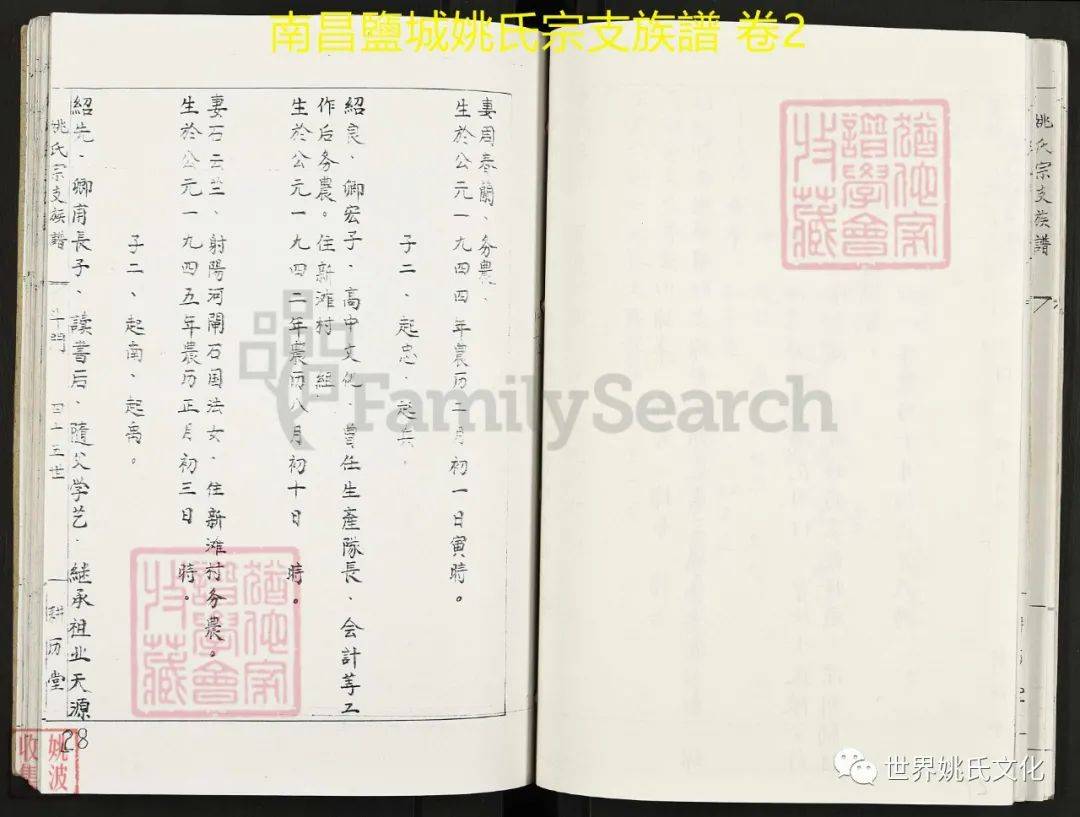 南昌鹽城姚氏宗支族譜 卷2
妻周春蘭、务農、
生於公元一九四四年農历二月初一日寅時。
子二、起忠、起兵、
紹良、卿宏子、高中文化、曾任生產隊長、会計等工
作后务農。住新滩村 組
生於公元一九四二年農历八月初十日 時。
妻石云兰、射陽河閘石国法女、住新滩村务農。
生於公元一九四五年農历正月初三日 時。
子二、起南、起禹。
紹先、卿甫長子、讀書后、隨父学艺、继承祖业天源
姚氏宗支族譜 斗門 四十三世 耕历堂
28
姚波
收集
譜學會
收藏
姚氏宗支族譜
FamilySearch
世界姚氏文化